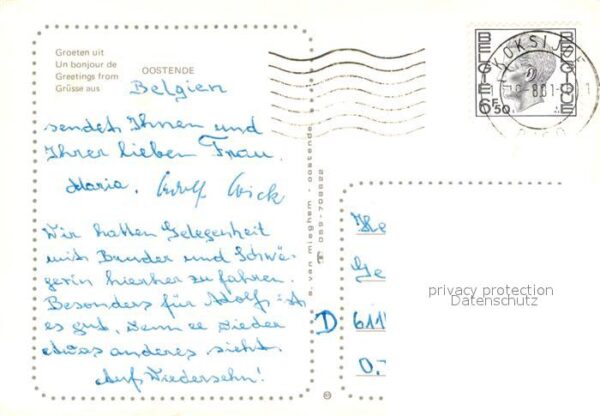 Groeten uit
Un bonjour de
Greetings from
Grüsse aus
OOSTENDE
Belgien
sendet Ihnen und
Ihrer lieben Frau,
Maria, Adolf
Wir hatten Gelegenheit
mit Bruder und Schwä-
gerin hierher zu fahren.
Besonders für Adolf ist
es gut, wenn er wieder
etwas anderes sieht.
Auf Wiedersehn!
a. van mieghem - oostende
059-708822
BELGIE
BELGIQUE
6F50
KOKSIJDE
He
Ge
D 611
O.-
privacy protection
Datenschutz